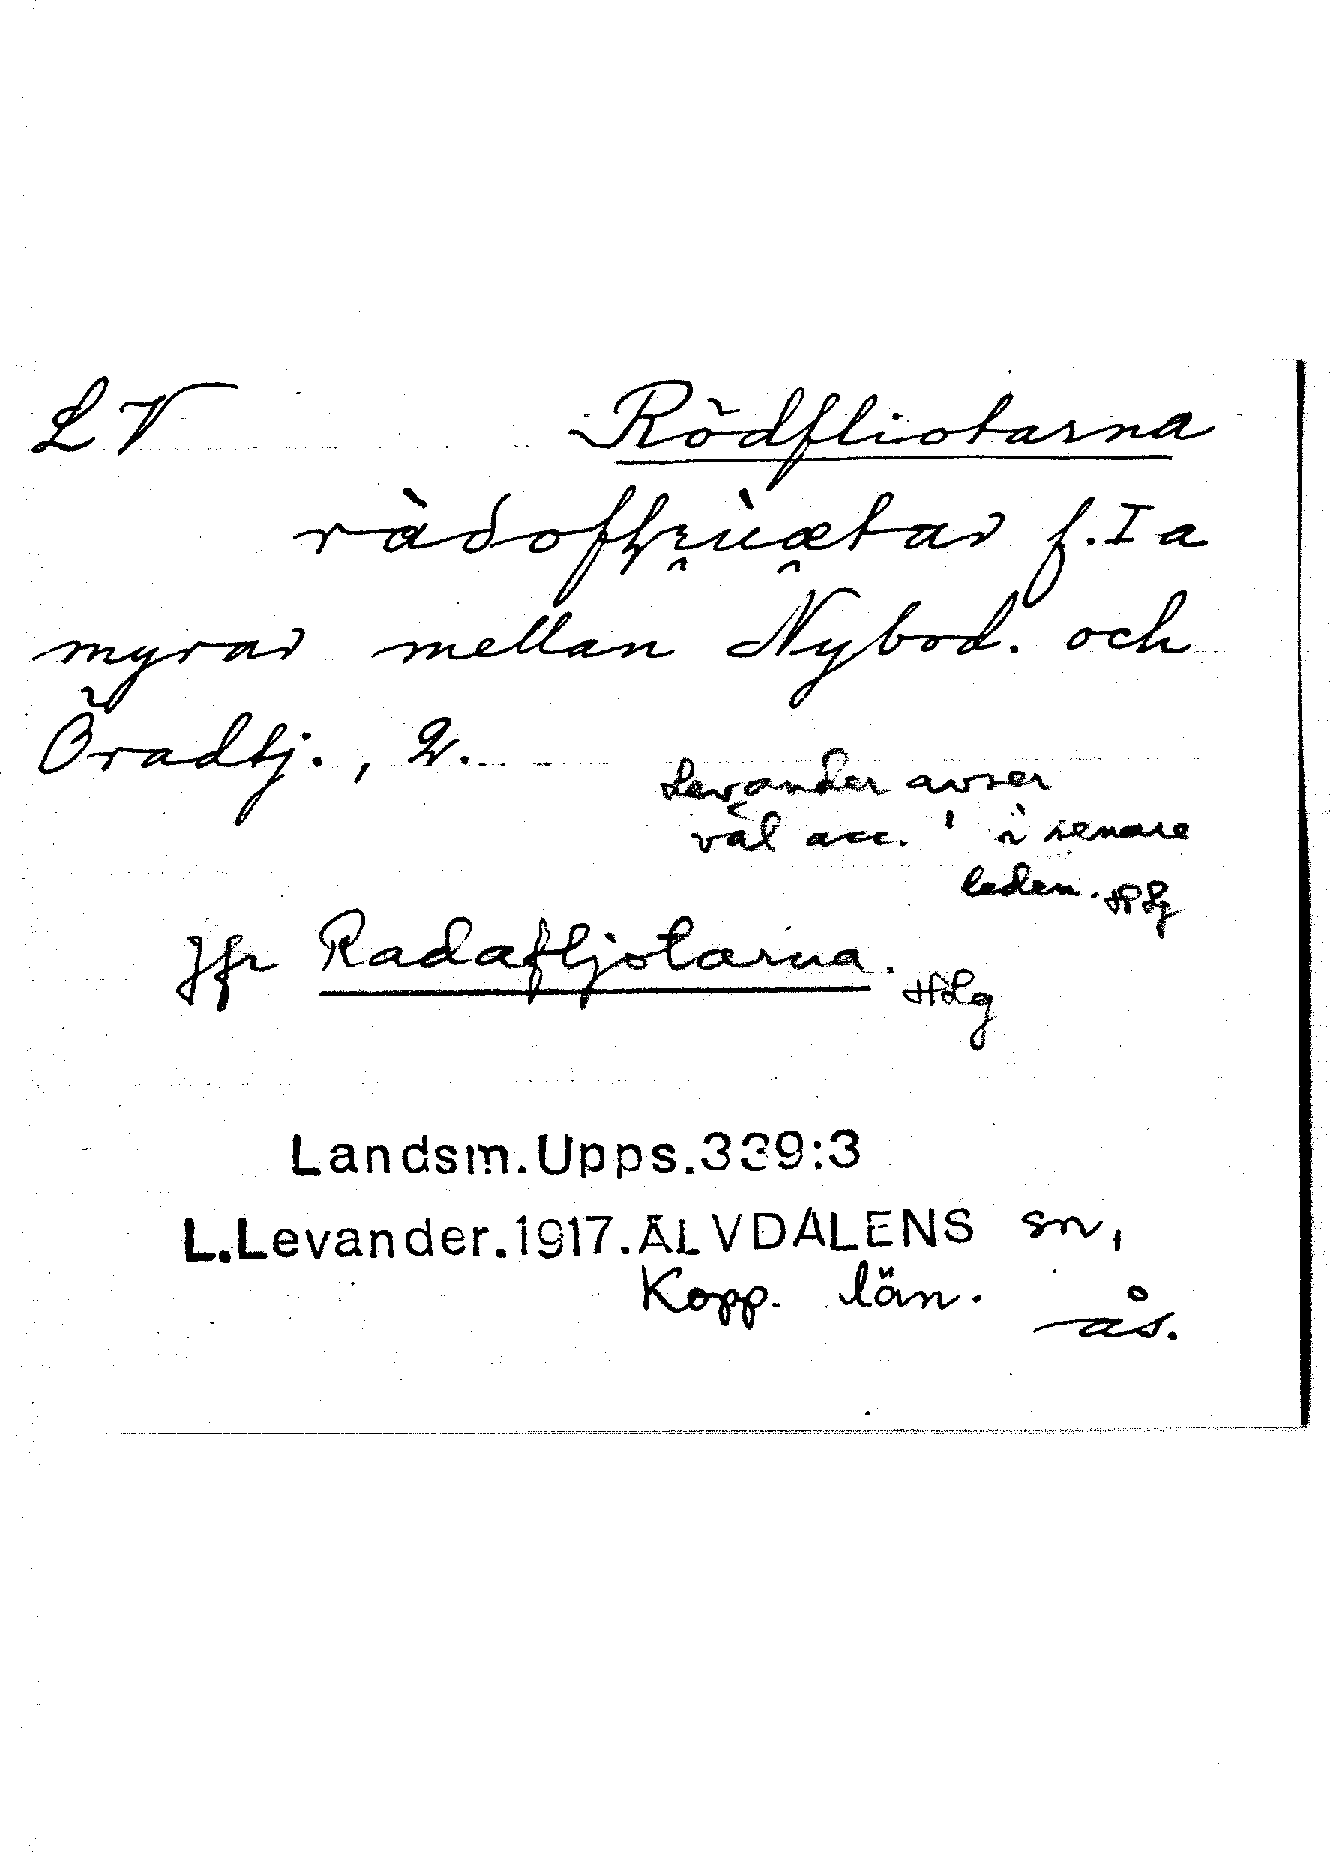 LV Rödfliotarna
f. I a
myrar mellan Nybod. och
Öradtj., 2.
Levander avser
väl acc. ' i senare
leden. HLg
Jfr Radafljotarna. HLg
Landsm.Upps.339:3
L.Levander.1917.ÄLVDALENS sn,
Kopp. län.
ås.